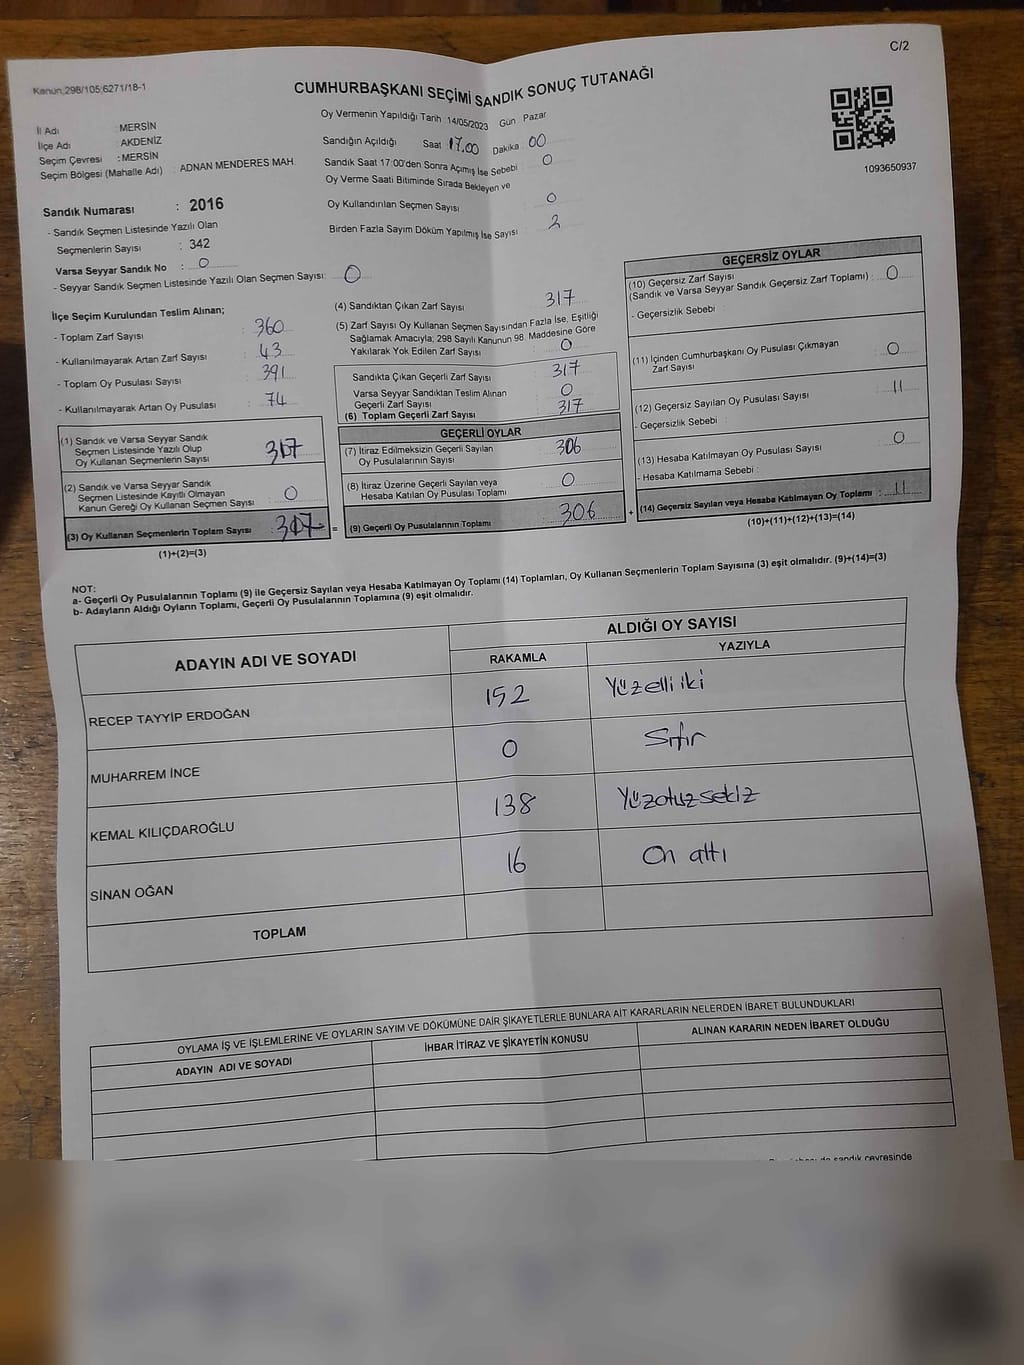 C/2
Kanun;298/105;6271/18-1
CUMHURBAŞKANI SEÇİMİ SANDIK SONUÇ TUTANAĞI
İl Adı : MERSİN
İlçe Adı : AKDENİZ
Seçim Çevresi : MERSİN
Seçim Bölgesi (Mahalle Adı) : ADNAN MENDERES MAH.
Oy Vermenin Yapıldığı Tarih 14/05/2023 Gün Pazar
Sandığın Açıldığı Saat 17.00 Dakika 00
Sandık Saat 17:00'den Sonra Açımış İse Sebebi : 0
Oy Verme Saati Bitiminde Sırada Bekleyen ve
Oy Kullandırılan Seçmen Sayısı 0
Birden Fazla Sayım Döküm Yapılmış İse Sayısı 2
1093650937
Sandık Numarası : 2016
- Sandık Seçmen Listesinde Yazılı Olan
Seçmenlerin Sayısı : 342
Varsa Seyyar Sandık No : 0
- Seyyar Sandık Seçmen Listesinde Yazılı Olan Seçmen Sayısı: 0
İlçe Seçim Kurulundan Teslim Alınan;
- Toplam Zarf Sayısı : 360
- Kullanılmayarak Artan Zarf Sayısı : 43
- Toplam Oy Pusulası Sayısı : 391
- Kullanılmayarak Artan Oy Pusulası : 74
(1) Sandık ve Varsa Seyyar Sandık
Seçmen Listesinde Yazılı Olup
Oy Kullanan Seçmenlerin Sayısı : 317
(2) Sandık ve Varsa Seyyar Sandık
Seçmen Listesinde Kayıtlı Olmayan
Kanun Gereği Oy Kullanan Seçmen Sayısı : 0
(3) Oy Kullanan Seçmenlerin Toplam Sayısı : 317 =
(1)+(2)=(3)
(4) Sandıktan Çıkan Zarf Sayısı 317
(5) Zarf Sayısı Oy Kullanan Seçmen Sayısından Fazla İse, Eşitliği
Sağlamak Amacıyla; 298 Sayılı Kanunun 98. Maddesine Göre
Yakılarak Yok Edilen Zarf Sayısı : 0
Sandıkta Çıkan Geçerli Zarf Sayısı : 317
Varsa Seyyar Sandıktan Teslim Alınan
Geçerli Zarf Sayısı : 0
(6) Toplam Geçerli Zarf Sayısı : 317
GEÇERLİ OYLAR
(7) İtiraz Edilmeksizin Geçerli Sayılan
Oy Pusulalarının Sayısı : 306
(8) İtiraz Üzerine Geçerli Sayılan veya
Hesaba Katılan Oy Pusulası Toplamı : 0
(9) Geçerli Oy Pusulalarının Toplamı : 306 +
GEÇERSİZ OYLAR
(10) Geçersiz Zarf Sayısı
(Sandık ve Varsa Seyyar Sandık Geçersiz Zarf Toplamı) : 0
- Geçersizlik Sebebi :
(11) İçinden Cumhurbaşkanı Oy Pusulası Çıkmayan
Zarf Sayısı : 0
(12) Geçersiz Sayılan Oy Pusulası Sayısı : 11
- Geçersizlik Sebebi :
(13) Hesaba Katılmayan Oy Pusulası Sayısı : 0
- Hesaba Katılmama Sebebi :
(14) Geçersiz Sayılan veya Hesaba Katılmayan Oy Toplamı : 11
(10)+(11)+(12)+(13)=(14)
NOT:
a- Geçerli Oy Pusulalarının Toplamı (9) ile Geçersiz Sayılan veya Hesaba Katılmayan Oy Toplamı (14) Toplamları, Oy Kullanan Seçmenlerin Toplam Sayısına (3) eşit olmalıdır. (9)+(14)=(3)
b- Adayların Aldığı Oyların Toplamı, Geçerli Oy Pusulalarının Toplamına (9) eşit olmalıdır.
ADAYIN ADI VE SOYADI
ALDIĞI OY SAYISI
RAKAMLA YAZIYLA
RECEP TAYYİP ERDOĞAN 152 Yüzelli iki
MUHARREM İNCE 0 Sıfır
KEMAL KILIÇDAROĞLU 138 Yüzotuzsekiz
SİNAN OĞAN 16 On altı
TOPLAM
OYLAMA İŞ VE İŞLEMLERİNE VE OYLARIN SAYIM VE DÖKÜMÜNE DAİR ŞİKAYETLERLE BUNLARA AİT KARARLARIN NELERDEN İBARET BULUNDUKLARI
ADAYIN ADI VE SOYADI İHBAR İTİRAZ VE ŞİKAYETİN KONUSU ALINAN KARARIN NEDEN İBARET OLDUĞU
sandık çevresinde